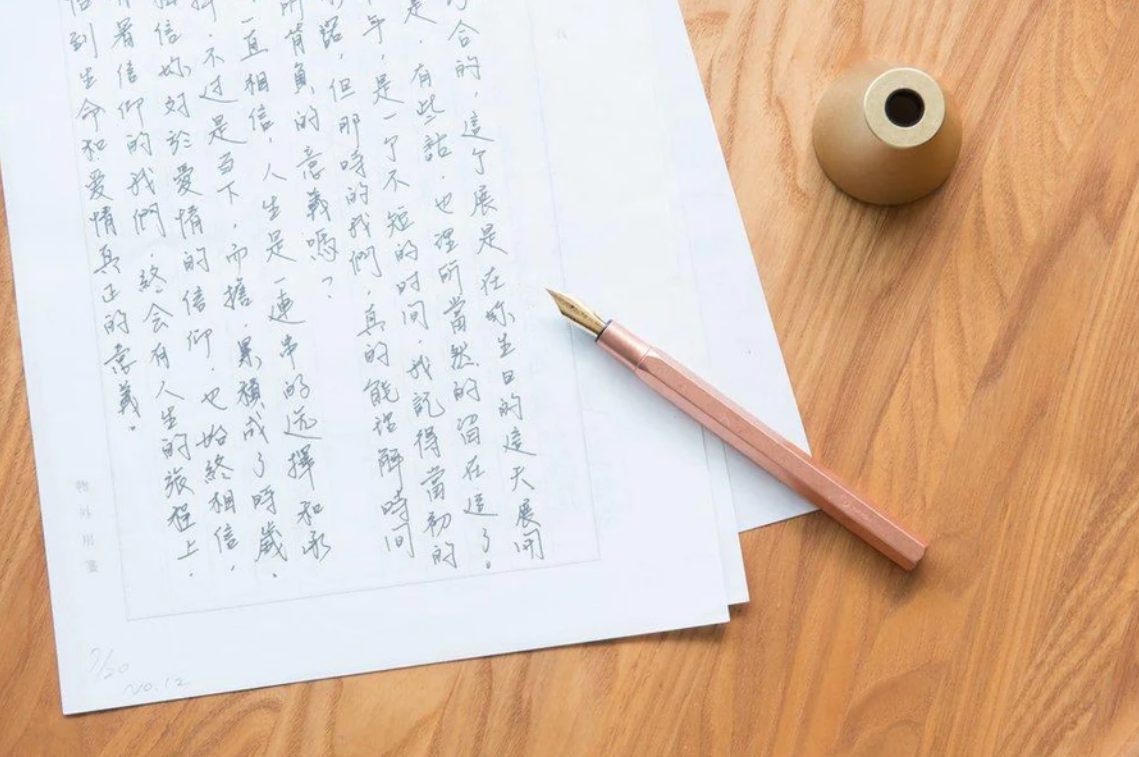 合的，這个展是在妳生日的這天展開
是，有些話，也理所當然的留在這了。
年，是一个不短的时间，我記得當初的
路，但那時的我們，真的能解時间
所背負的意義嗎？
一直相信，人生是一連串的选擇和承
擇，不过是当下，而擔，累積成了時歲，
信妳对於愛情的信仰，也始終相信，
著信仰的我們，終会有人生的旅程上，
到生命和爱情真正的意義。
物外用箋
7/20
NO.12